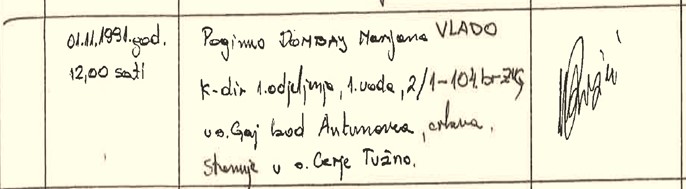 01.11.1991.god.
12,00 sati
Poginuo DOMBAY Marijana VLADO
k-dir 1.odjeljenja, 1.voda, 2/1-104.br ZNG
u s. Gaj kod Antunovca,
Stanuje u s. Cerje Tužno.